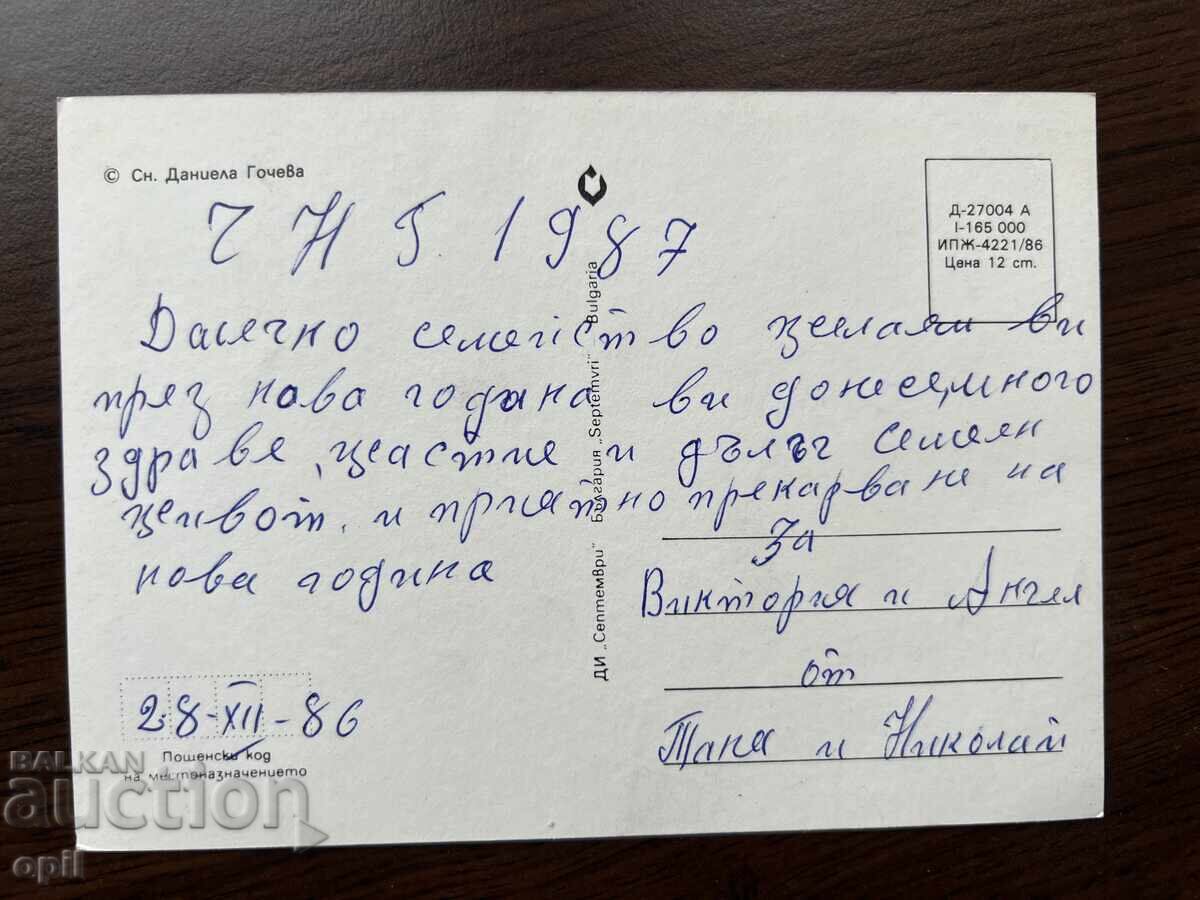 © Сн. Даниела Гочева
Ч Н Г 1987
Далечно семейство желаям ви
през нова година ви донесемного
здраве, щастие и дълъг семеен
живот. и приятно прекарване на
нова година
28-XII-86
Пощенски код
на местоназначението
ДИ „Септември“ България „Septemvri“ Bulgaria
Д-27004 А
I-165 000
ИПЖ-4221/86
Цена 12 ст.
за
Виктория и Ангел
от
Таня и Николай
BALKAN
auction
opil